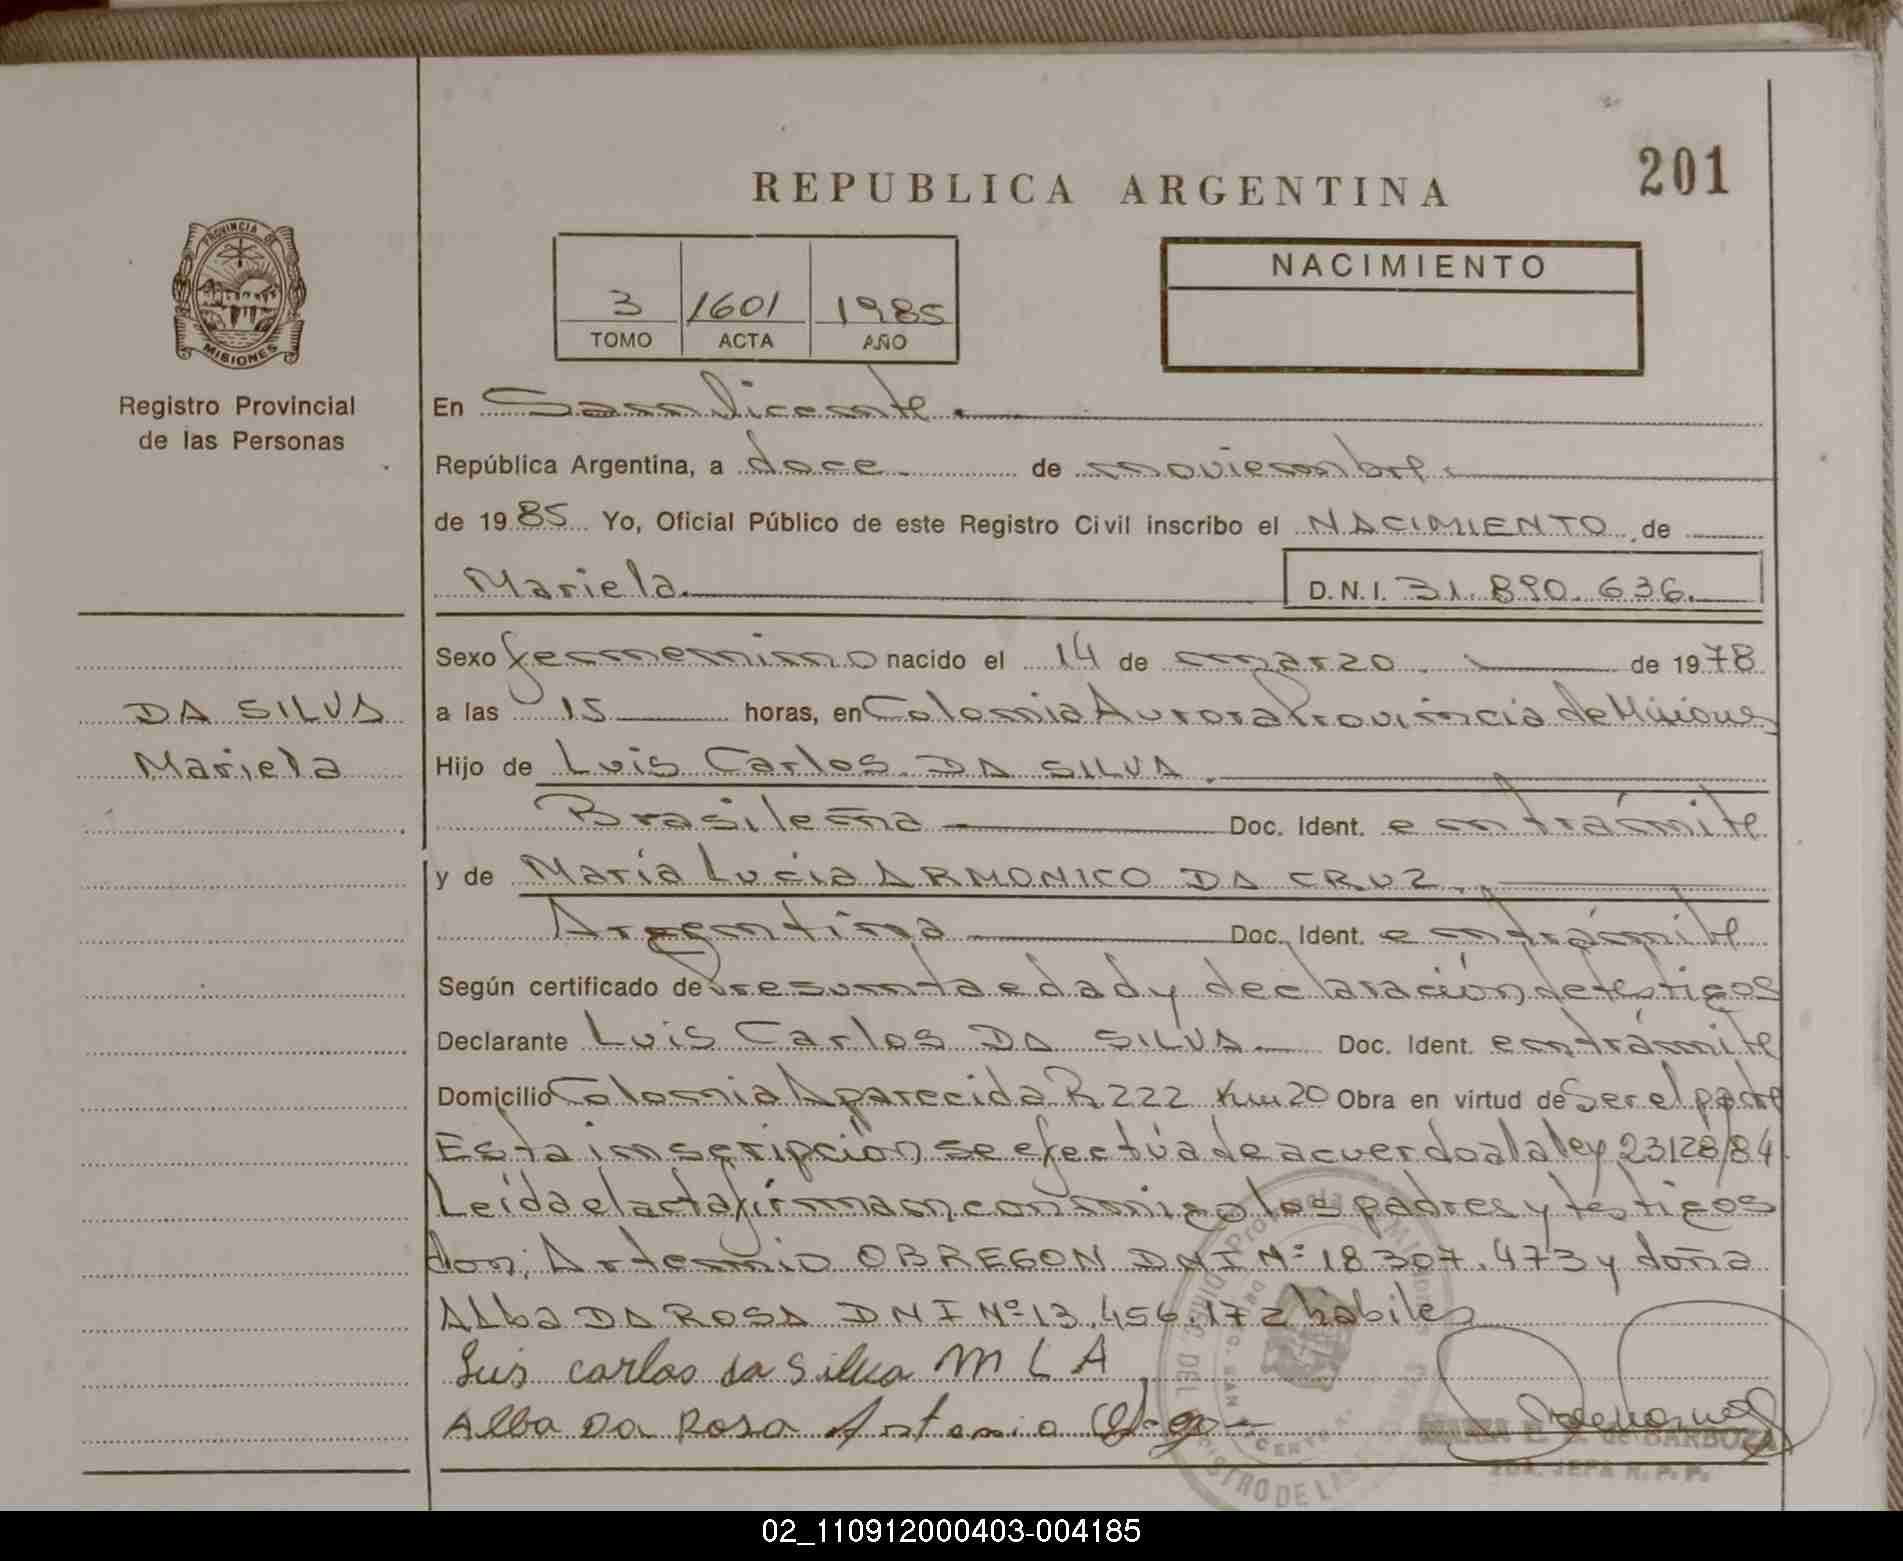 201
REPUBLICA ARGENTINA
PROVINCIA DE
MISIONES
Registro Provincial
de las Personas
3 1601 1985
TOMO ACTA AÑO
NACIMIENTO
En San Vicente.
República Argentina, a doce de noviembre
de 1985 Yo, Oficial Público de este Registro Civil inscribo el NACIMIENTO, de
Mariela D.N.I. 31.890.636.
Sexo femenino nacido el 14 de marzo de 1978
DA SILVA
Mariela
a las 15 horas, en Colonia Aurora Provincia de Misiones
Hijo de Luis Carlos DA SILVA.
Brasileña Doc. Ident. en trámite
y de María Lucia ARMONICO DA CRUZ.
Argentina Doc. Ident. en trámite
Según certificado de presunta edad y declaración de testigos
Declarante Luis Carlos DA SILVA Doc. Ident. en trámite
Domicilio Colonia Aparecida R 222 Km 20 Obra en virtud de Ser el padre
Esta inscripción se efectúa de acuerdo a la ley 23128/84
Leída el acta firman conmigo los padres y testigos
don; Artemio OBREGON DNI Nº 18 307.473 y doña
Alba DA ROSA DNI Nº 13.456.172 hábiles
Luis carlos da Silva M L A
Alba Da Rosa
de BARBOZA
2da. JEFA R. P. P.
02_110912000403-004185